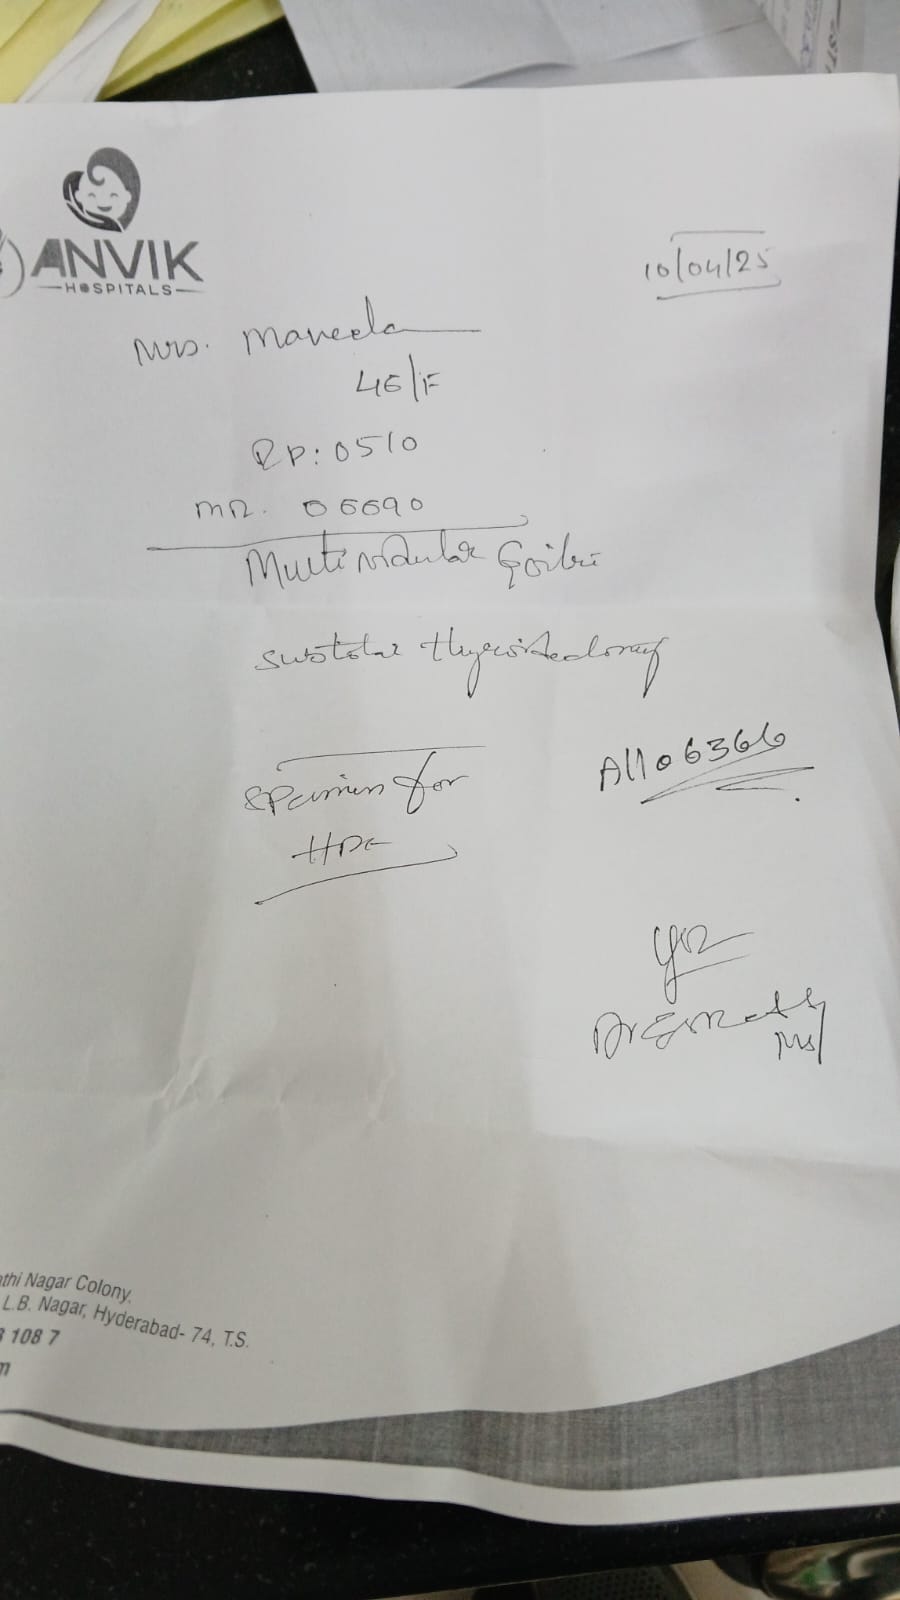 ANVIK
HOSPITALS
10/04/25
Mrs. Maneela
46/F
RP: 0510
MR. 06690
Multinodular Goitre
subtotal thyroidectomy
Specimen for
HPE
A1106366
Dr
MS
thi Nagar Colony,
L.B. Nagar, Hyderabad- 74, T.S.
108 7